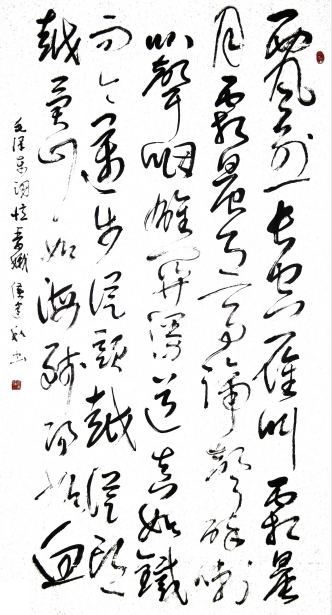 西風烈長空雁叫霜晨
月霜晨月馬蹄聲碎喇
叭聲咽雄關漫道真如鐵
而今邁步從頭越從頭
越蒼山如海殘陽如血
毛澤東詞憶秦娥書